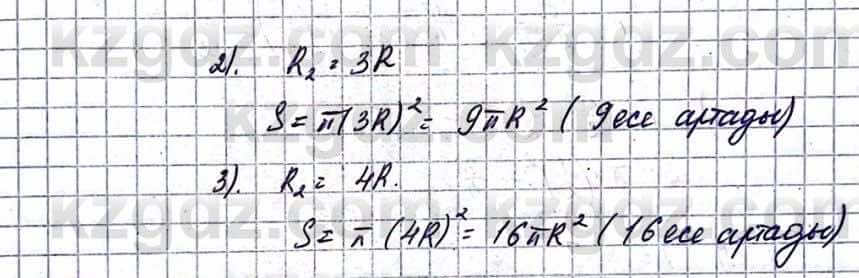 kzgdz.com kzgdz.com
2). R₂ = 3R
S = π(3R)² = 9πR² ( 9 есе артады)
3). R₂ = 4R.
S = π (4R)² = 16πR² ( 16 есе артады)